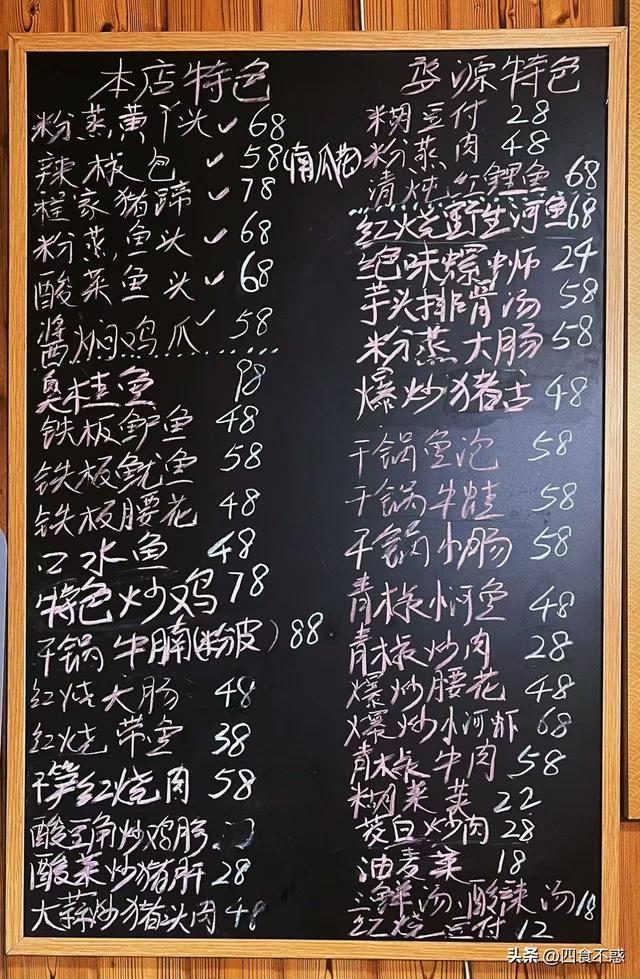 本店特色
粉蒸黄丫头 ✓ 68
辣椒包 ✓ 58 (南瓜苞)
程家猪蹄 ✓ 78
粉蒸鱼头 ✓ 68
酸菜鱼头 ✓ 68
酱焖鸡爪 ✓ 58
臭桂鱼 98
铁板鲈鱼 48
铁板鱿鱼 58
铁板腰花 48
口水鱼 48
特色炒鸡 78
干锅牛腩(粉皮) 88
红烧大肠 48
红烧带鱼 38
干笋红烧肉 58
酸豆角炒鸡胗
酸菜炒猪肝 28
大蒜炒猪头肉 48
婺源特色
糊豆付 28
粉蒸肉 48
清炖红鲤鱼 68
红烧野生河鱼 68
绝味螺蛳 24
芋头排骨汤 58
粉蒸大肠 58
爆炒猪舌 48
干锅鱼泡 58
干锅牛蛙 58
干锅小肠 58
青椒小河鱼 48
青椒炒肉 28
爆炒腰花 48
爆炒小河虾 68
青椒牛肉 58
糊菜羹 22
茭白炒肉 28
油麦菜 18
三鲜汤、酸辣汤 18
红烧豆付 12
头条 @四食不惑